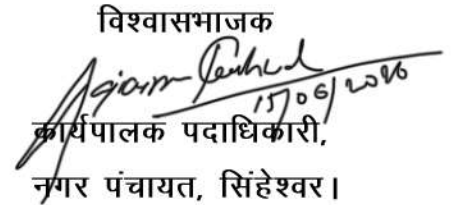 विश्वासभाजक
15/06/2026
कार्यपालक पदाधिकारी,
नगर पंचायत, सिंहेश्वर।